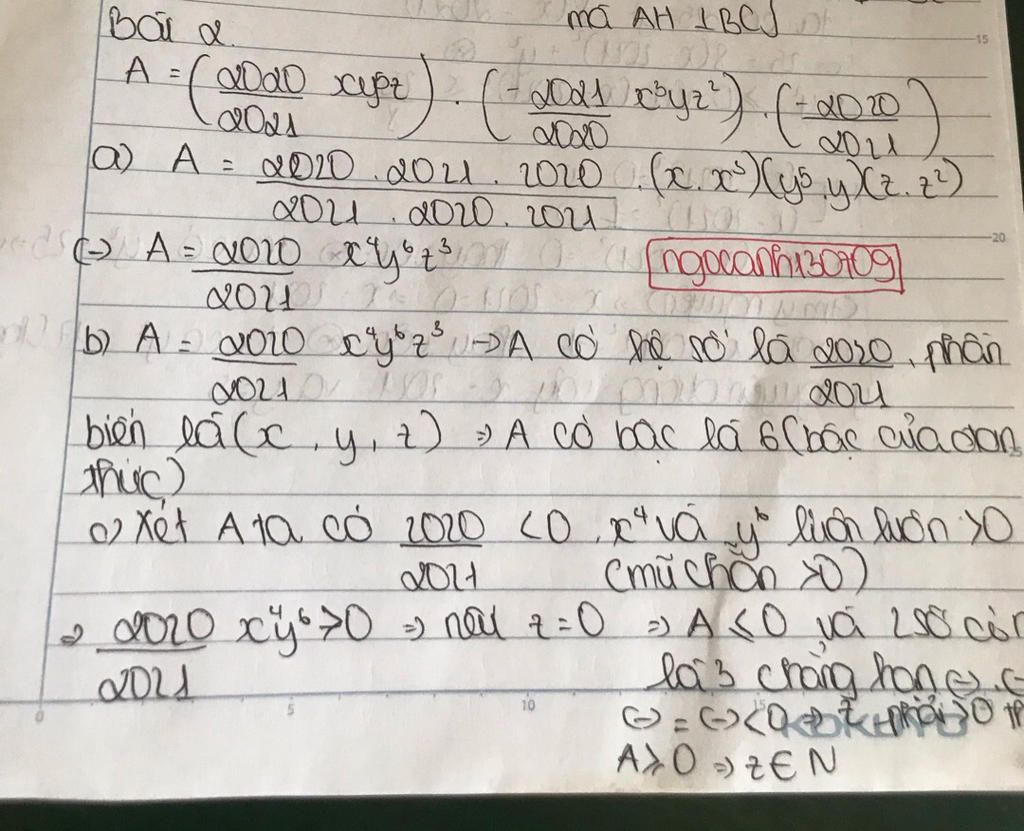 mà AH ⊥BC)
15
Bài 2.
A = (2020/2021 xy⁵z) . (-2021/2020 x³yz²) . (-2020/2021)
a) A = 2020 . 2021 . 2020 / 2021 . 2020 . 2021 . (x . x³)(y⁵ . y)(z . z²)
20
(-) A = 2020/2021 x⁴y⁶z³
ngocanh130709
b) A = 2020/2021 x⁴y⁶z³ → A có hệ số là 2020/2021, phần
biến là (x, y, z) ⇒ A có bậc là 6 (bậc của đơn
thức)
c) Xét A ta có 2020/2021 <0, x⁴ và y⁶ luôn luôn >0
(mũ chẵn >0)
⇒ 2020/2021 x⁴y⁶ >0 ⇒ nếu z = 0 ⇒ A ≤ 0 và 2 số
là 3 chẳng hạn (-) . (-)
0 5 10 15
(-) = (-) <0 ⇒ z phải >0
KOKUYO
A ≥ 0 ⇒ z ∈ N